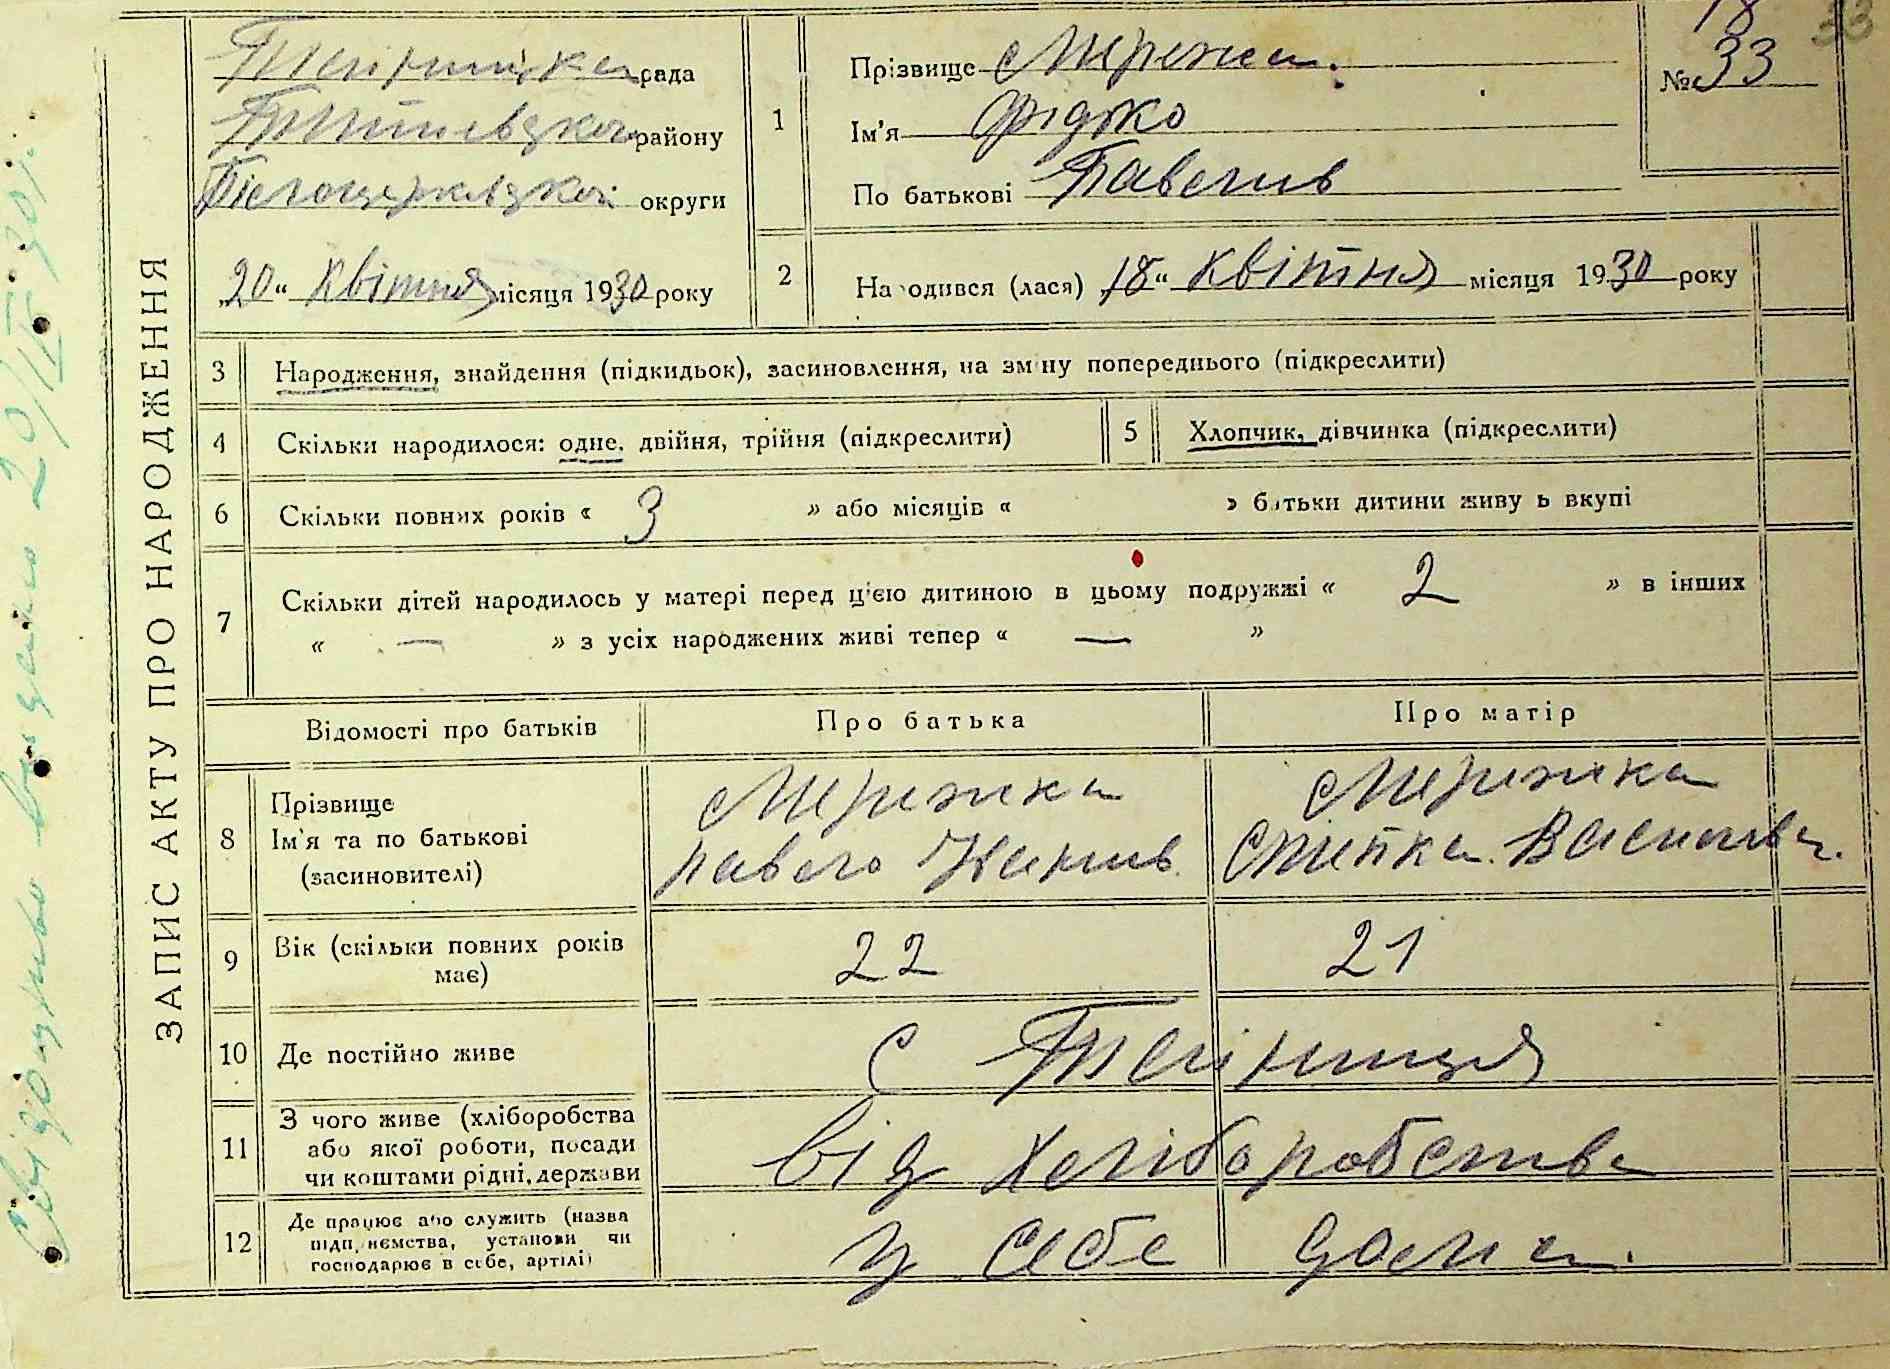 ЗАПИС АКТУ ПРО НАРОДЖЕННЯ
рада
району
Білоцерківської округи
„20“ квітня місяця 1930 року
18
33
№ 33
1
Прізвище Мережка.
Ім'я Фідько
По батькові Павлив
2
Народився (лася) „18“ квітня місяця 1930 року
3 Народження, знайдення (підкидьок), засиновлення, на зміну попереднього (підкреслити)
4 Скільки народилося: одне, двійня, трійня (підкреслити)
5 Хлопчик, дівчинка (підкреслити)
6 Скільки повних років « 3 » або місяців « » батьки дитини живуть вкупі
7 Скільки дітей народилось у матері перед цією дитиною в цьому подружжі « 2 » в інших
« — » з усіх народжених живі тепер « — »
Відомості про батьків
Про батька
Про матір
8 Прізвище
Ім'я та по батькові
(засиновителі)
Мережка
Павло
Мережка
Василівна.
9 Вік (скільки повних років
має)
22
21
10 Де постійно живе
с
11 З чого живе (хліборобства
або якої роботи, посади
чи коштами рідні, держави
від хліборобства
12 Де працює або служить (назва
підприємства, установи чи
господарює в себе, артілі)
у себе дома.
Свідоцтво видано 20/IV 30 р.